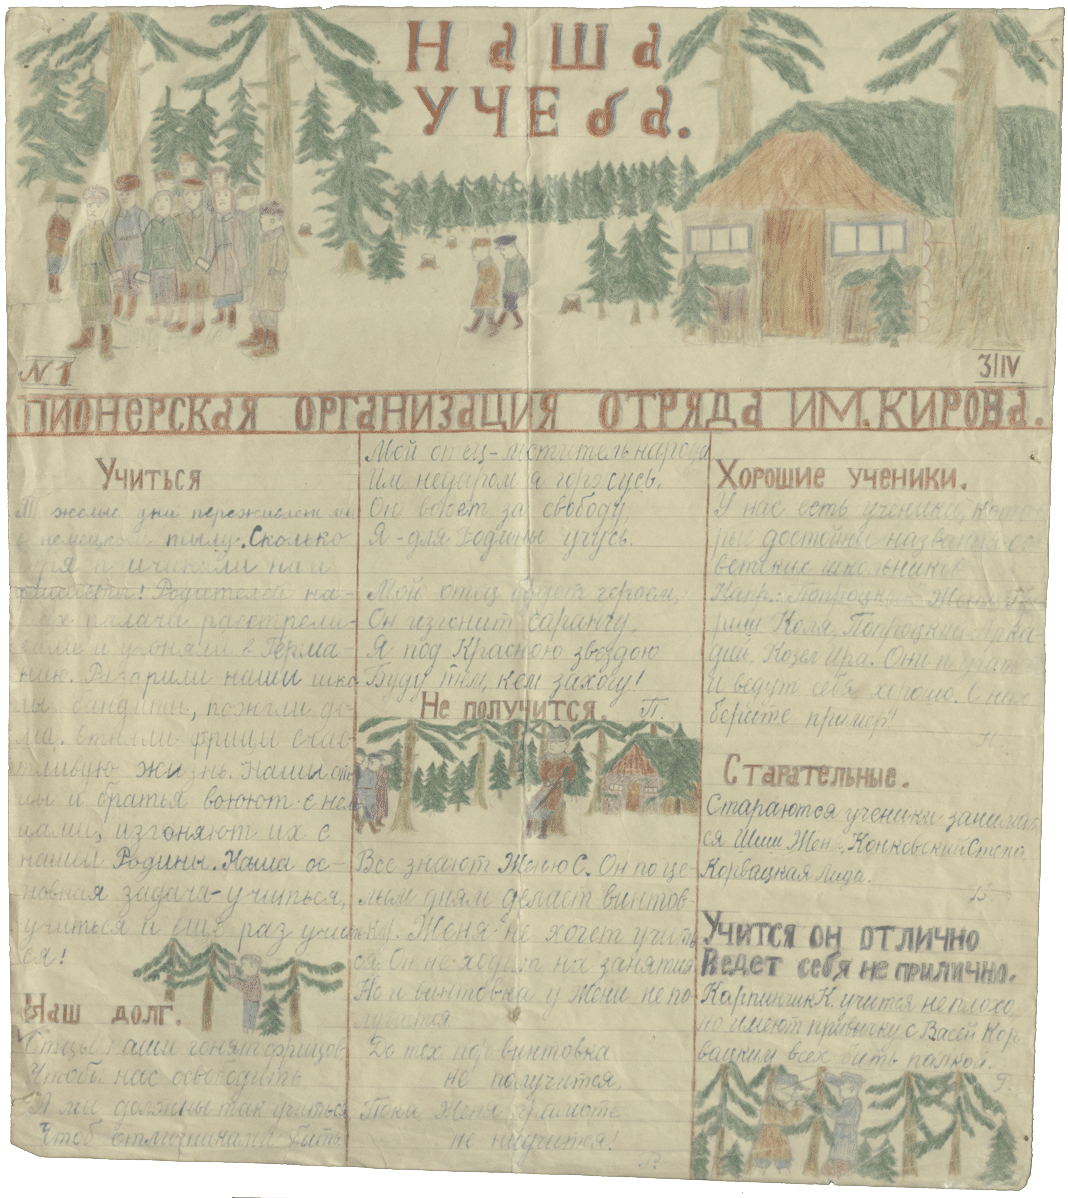 Наша
учеба.
N 1
3/IV
ПИОНЕРСКАЯ ОРГАНИЗАЦИЯ ОТРЯДА ИМ. КИРОВА.
Учиться
Тяжелые дни переживаем мы
в немецком тылу. Сколько
горя причинили нам
Родителей на-
ших палачи расстреля-
ли и угоняли в Герма-
нию. Разорили наши шко
лы бандиты, пожгли до-
ма. Отняли фрицы счас-
тливую жизнь. Наши от-
цы и братья воюют с нем
цами, изгоняют их с
нашей Родины. Наша ос-
новная задача-учиться,
учиться и еще раз учить
ся!
Наш долг.
Отцы наши гонят фрицов
Чтобы нас освободить
А мы должны так учиться
Чтоб отличниками быть
Мой отец-мститель народа
Им недаром я горжусь.
Он воюет за свободу,
Я-для Родины учусь.
Мой отец будет героем,
Он изгонит саранчу.
Я под Красною звездою
Буду тем, кем захочу!
П.
Не получится
Все знают Женю С. Он по це-
лым дням делает винтов-
ки. Женя не хочет учить
ся. Он не ходит на занятия
Но и винтовка у Жени не по
лучится
До тех пор винтовка
не получится,
Пока Женя грамоте
не научится!
Хорошие ученики.
У нас есть ученики, кото-
рые достойны названия со
ветских школьников
Напр: Попроцкий Женя, Гу
рин Коля, Попроцкий Арка
дий, Козел Ира. Они
и ведут себя хорошо. С них
берите пример!
Старательные.
Стараются ученики занимать
ся Шиш Женя, Конковский Степа
Корвацкая Лида.
Учится он отлично
Ведет себя не прилично.
Карпинчик К. учится не плохо,
но имеют привычку с Васей Кор
вацким всех бить палкой.
Г.